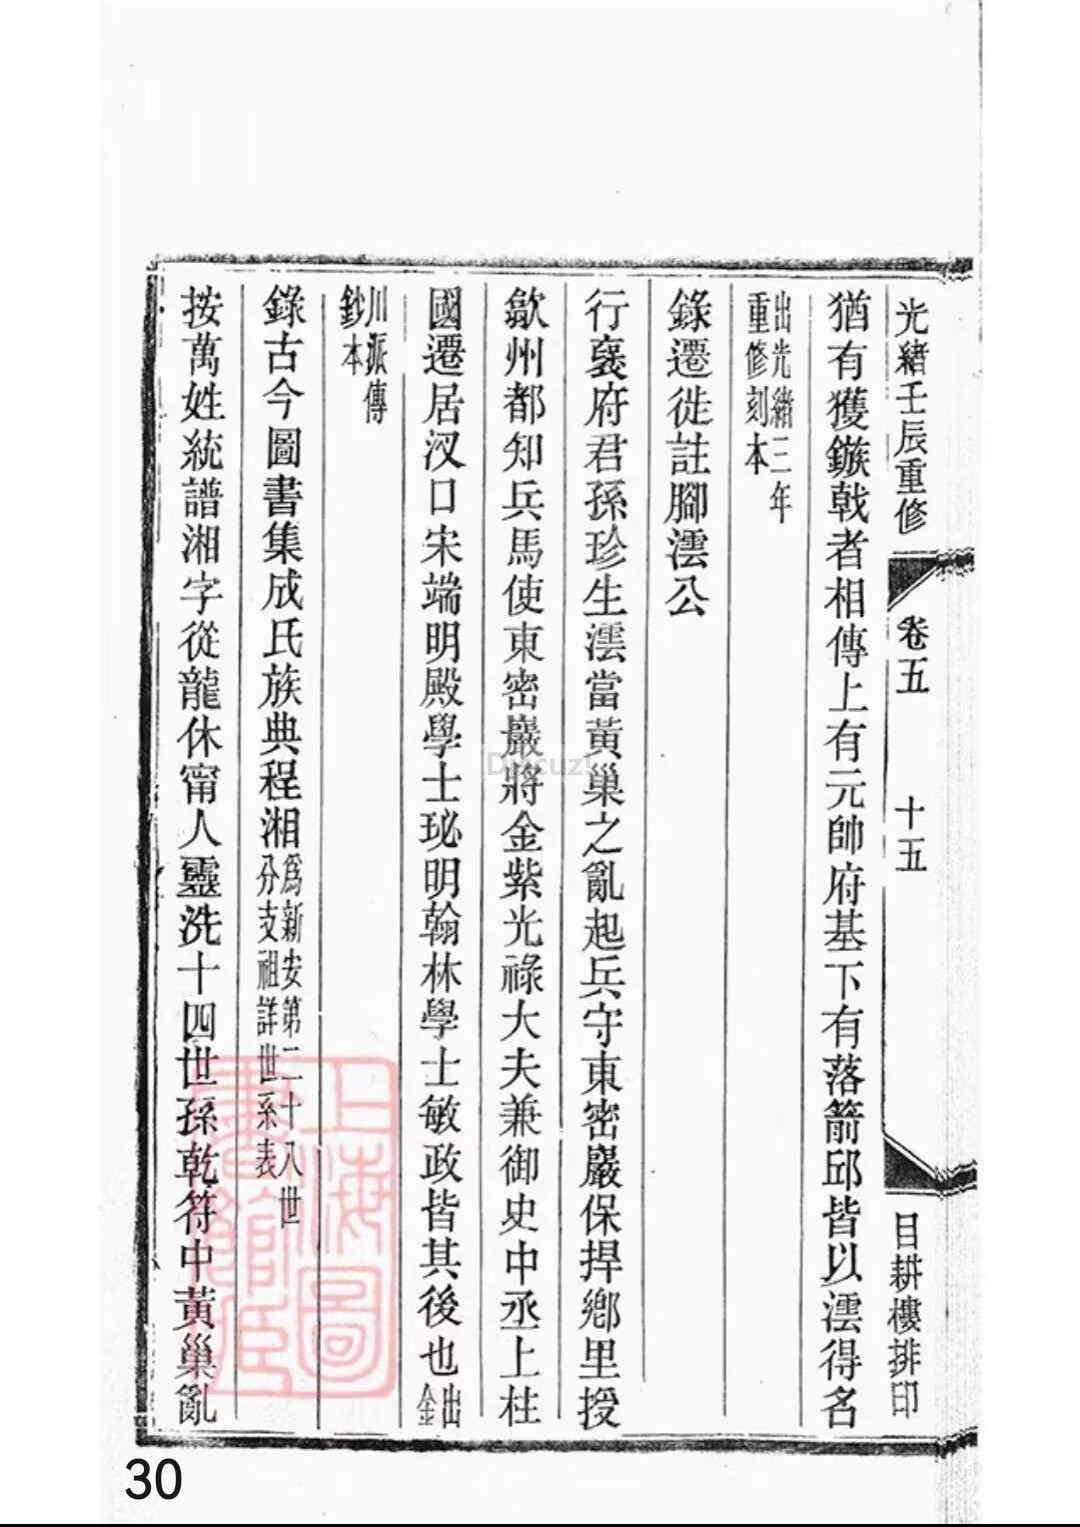 光緒壬辰重修
卷五
十五
目耕樓排印
猶有獲鏃戟者相傳上有元帥府基下有落箭邱皆以澐得名
出光緒三年
重修刻本
錄遷徙註腳澐公
行襄府君孫珍生澐當黃巢之亂起兵守東密巖保捍鄉里授
歙州都知兵馬使東密巖將金紫光祿大夫兼御史中丞上柱
國遷居汊口宋端明殿學士珌明翰林學士敏政皆其後也出金
川派傳
鈔本
錄古今圖書集成氏族典程湘為新安第二十八世
分支祖詳世系表
按萬姓統譜湘字從龍休甯人靈洗十四世孫乾符中黃巢亂
上海圖
書館藏
Discuz!
30